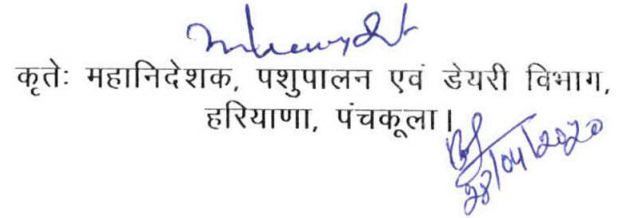 कृतेः महानिदेशक, पशुपालन एवं डेयरी विभाग,
हरियाणा, पंचकूला।
28/04/2020